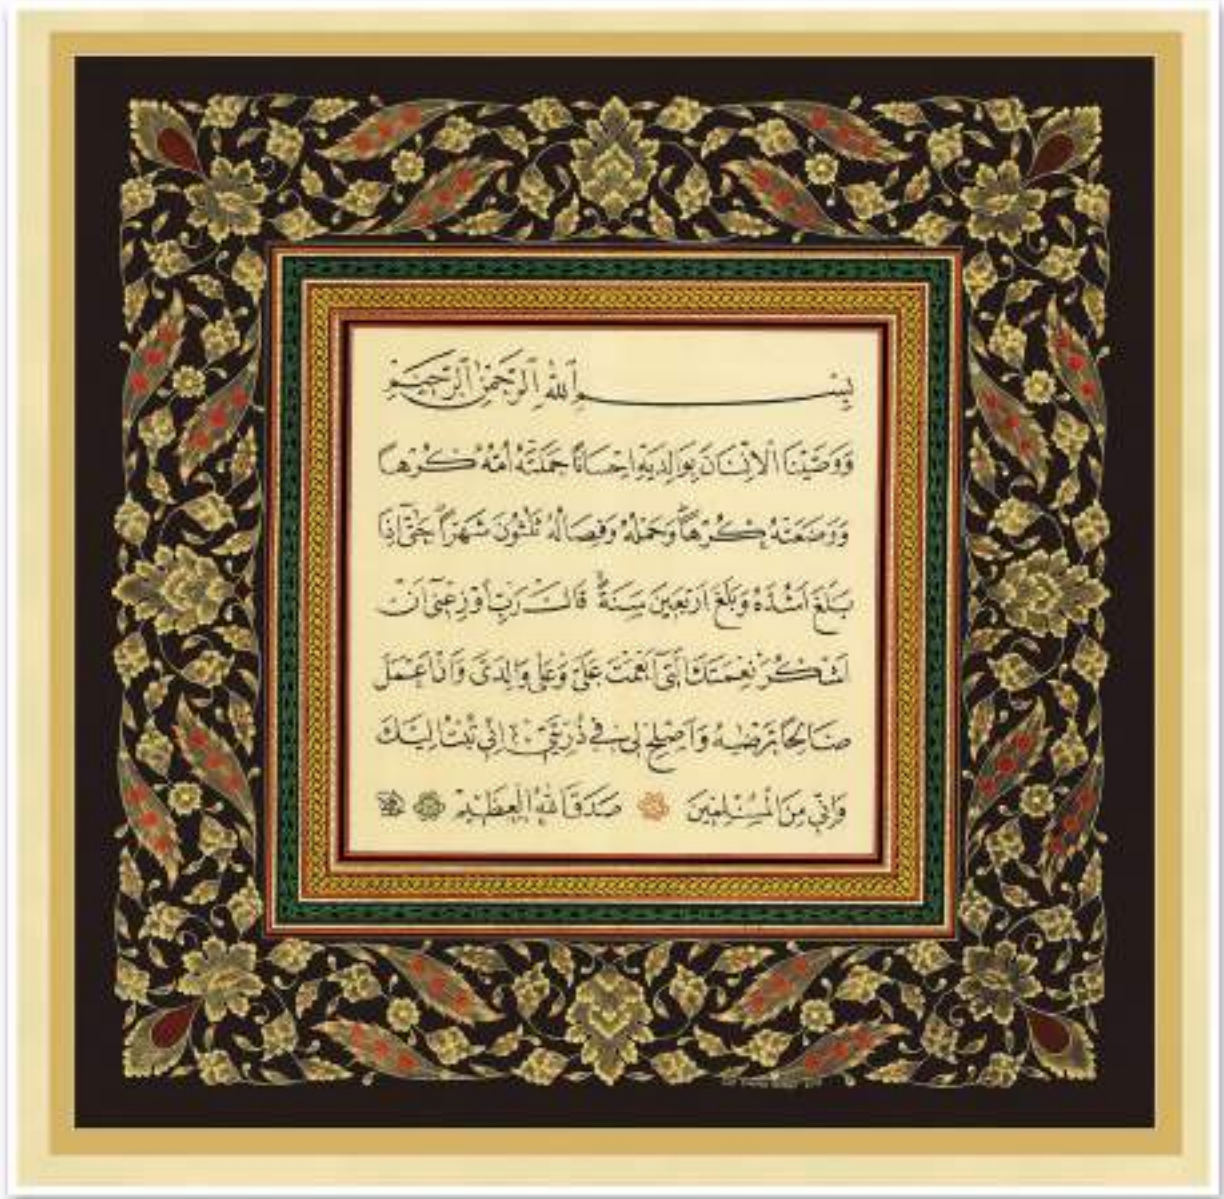 بِسْمِ ٱللهِ ٱلرَّحْمٰنِ ٱلرَّحِيمِ
وَوَصَّيْنَا الْاِنْسَانَ بِوَالِدَيْهِ اِحْسَانًا حَمَلَتْهُ اُمُّهُ كُرْهًا
وَوَضَعَتْهُ كُرْهًا وَحَمْلُهُ وَفِصَالُهُ ثَلٰثُونَ شَهْرًا حَتّٰٓى اِذَا
بَلَغَ اَشُدَّهُ وَبَلَغَ اَرْبَعِينَ سَنَةً قَالَ رَبِّ اَوْزِعْنِٓى اَنْ
اَشْكُرَ نِعْمَتَكَ الَّتِٓى اَنْعَمْتَ عَلَىَّ وَعَلٰى وَالِدَىَّ وَاَنْ اَعْمَلَ
صَالِحًا تَرْضٰيهُ وَاَصْلِحْ لِى فِى ذُرِّيَّتِى اِنِّى تُبْتُ اِلَيْكَ
وَاِنِّى مِنَ الْمُسْلِمِينَ صَدَقَ اللهُ الْعَظِيمُ